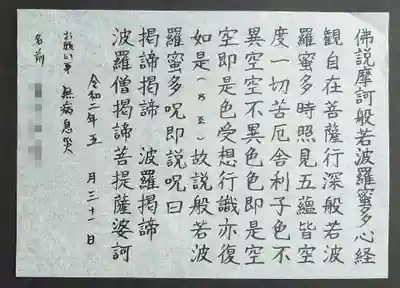 佛説摩訶般若波羅蜜多心経
観自在菩薩行深般若波
羅蜜多時照見五蘊皆空
度一切苦厄舎利子色不
異空空不異色色即是空
空即是色受想行識亦復
如是(乃至)故説般若波
羅蜜多呪即説呪曰
揭諦揭諦 波羅揭諦
波羅僧揭諦菩提薩婆訶
令和二年五月三十一日
お願い事 無病息災
名前